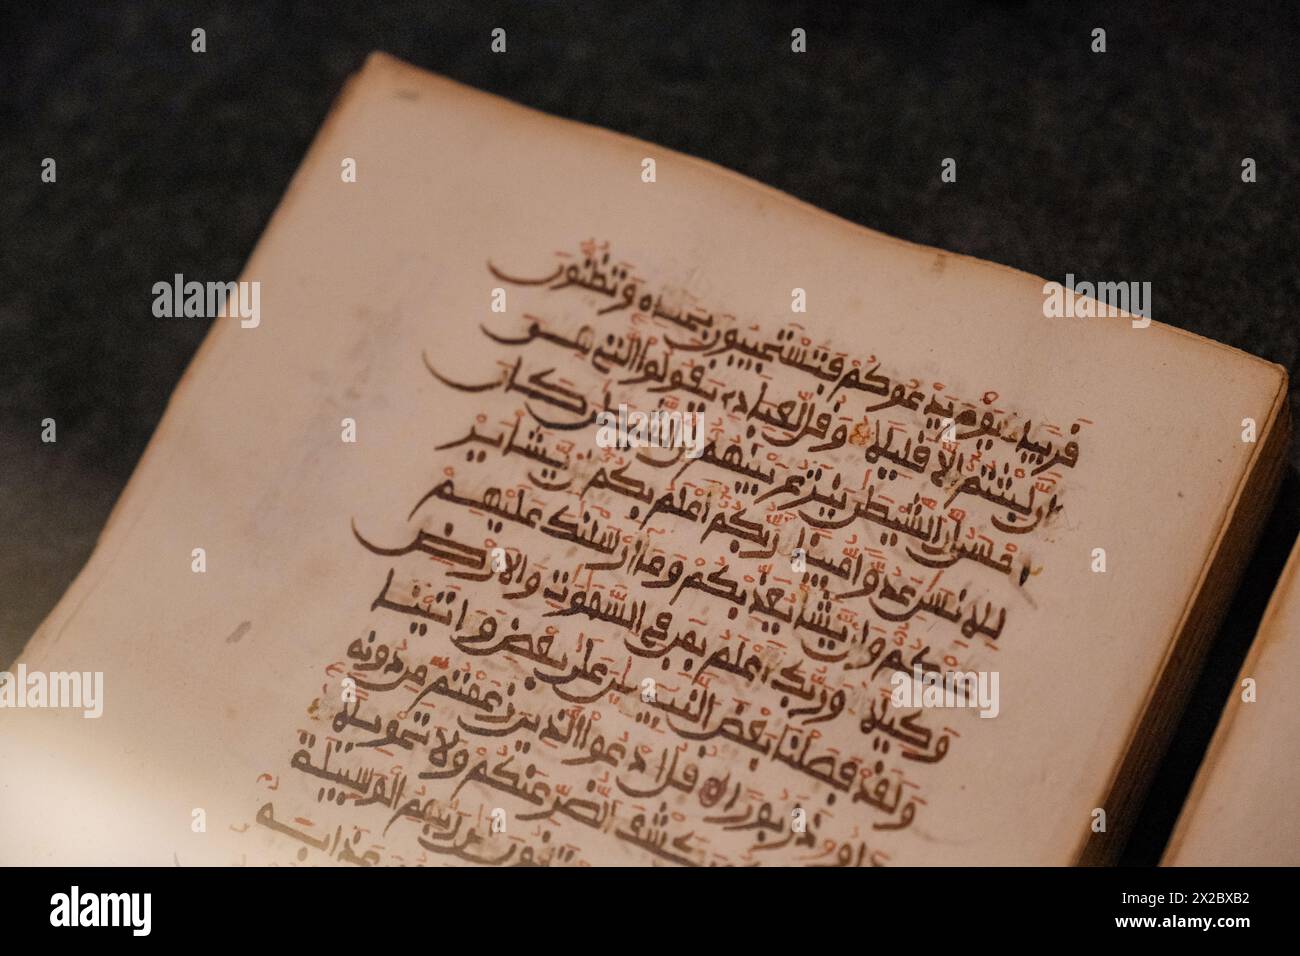 قريبا يوم يدعوكم فتستجيبون بحمده وتظنون
ان لبثتم الا قليلا وقل لعبادي يقولوا التي هي
احسن ان الشيطن ينزغ بينهم ان الشيطن كان
للانسن عدوا مبينا ربكم اعلم بكم ان يشا ير
حمكم او ان يشا يعذبكم وما ارسلنك عليهم
وكيلا وربك اعلم بمن في السموت والارض
ولقد فضلنا بعض النبيين على بعض واتينا
داود زبورا قل ادعوا الذين زعمتم من دونه
كشف الضر عنكم ولا تحويلا
يبتغون الى ربهم الوسيلة
عذابه
alamy
alamy
alamy
alamy
alamy
Image ID: 2X2BXB2
www.alamy.com